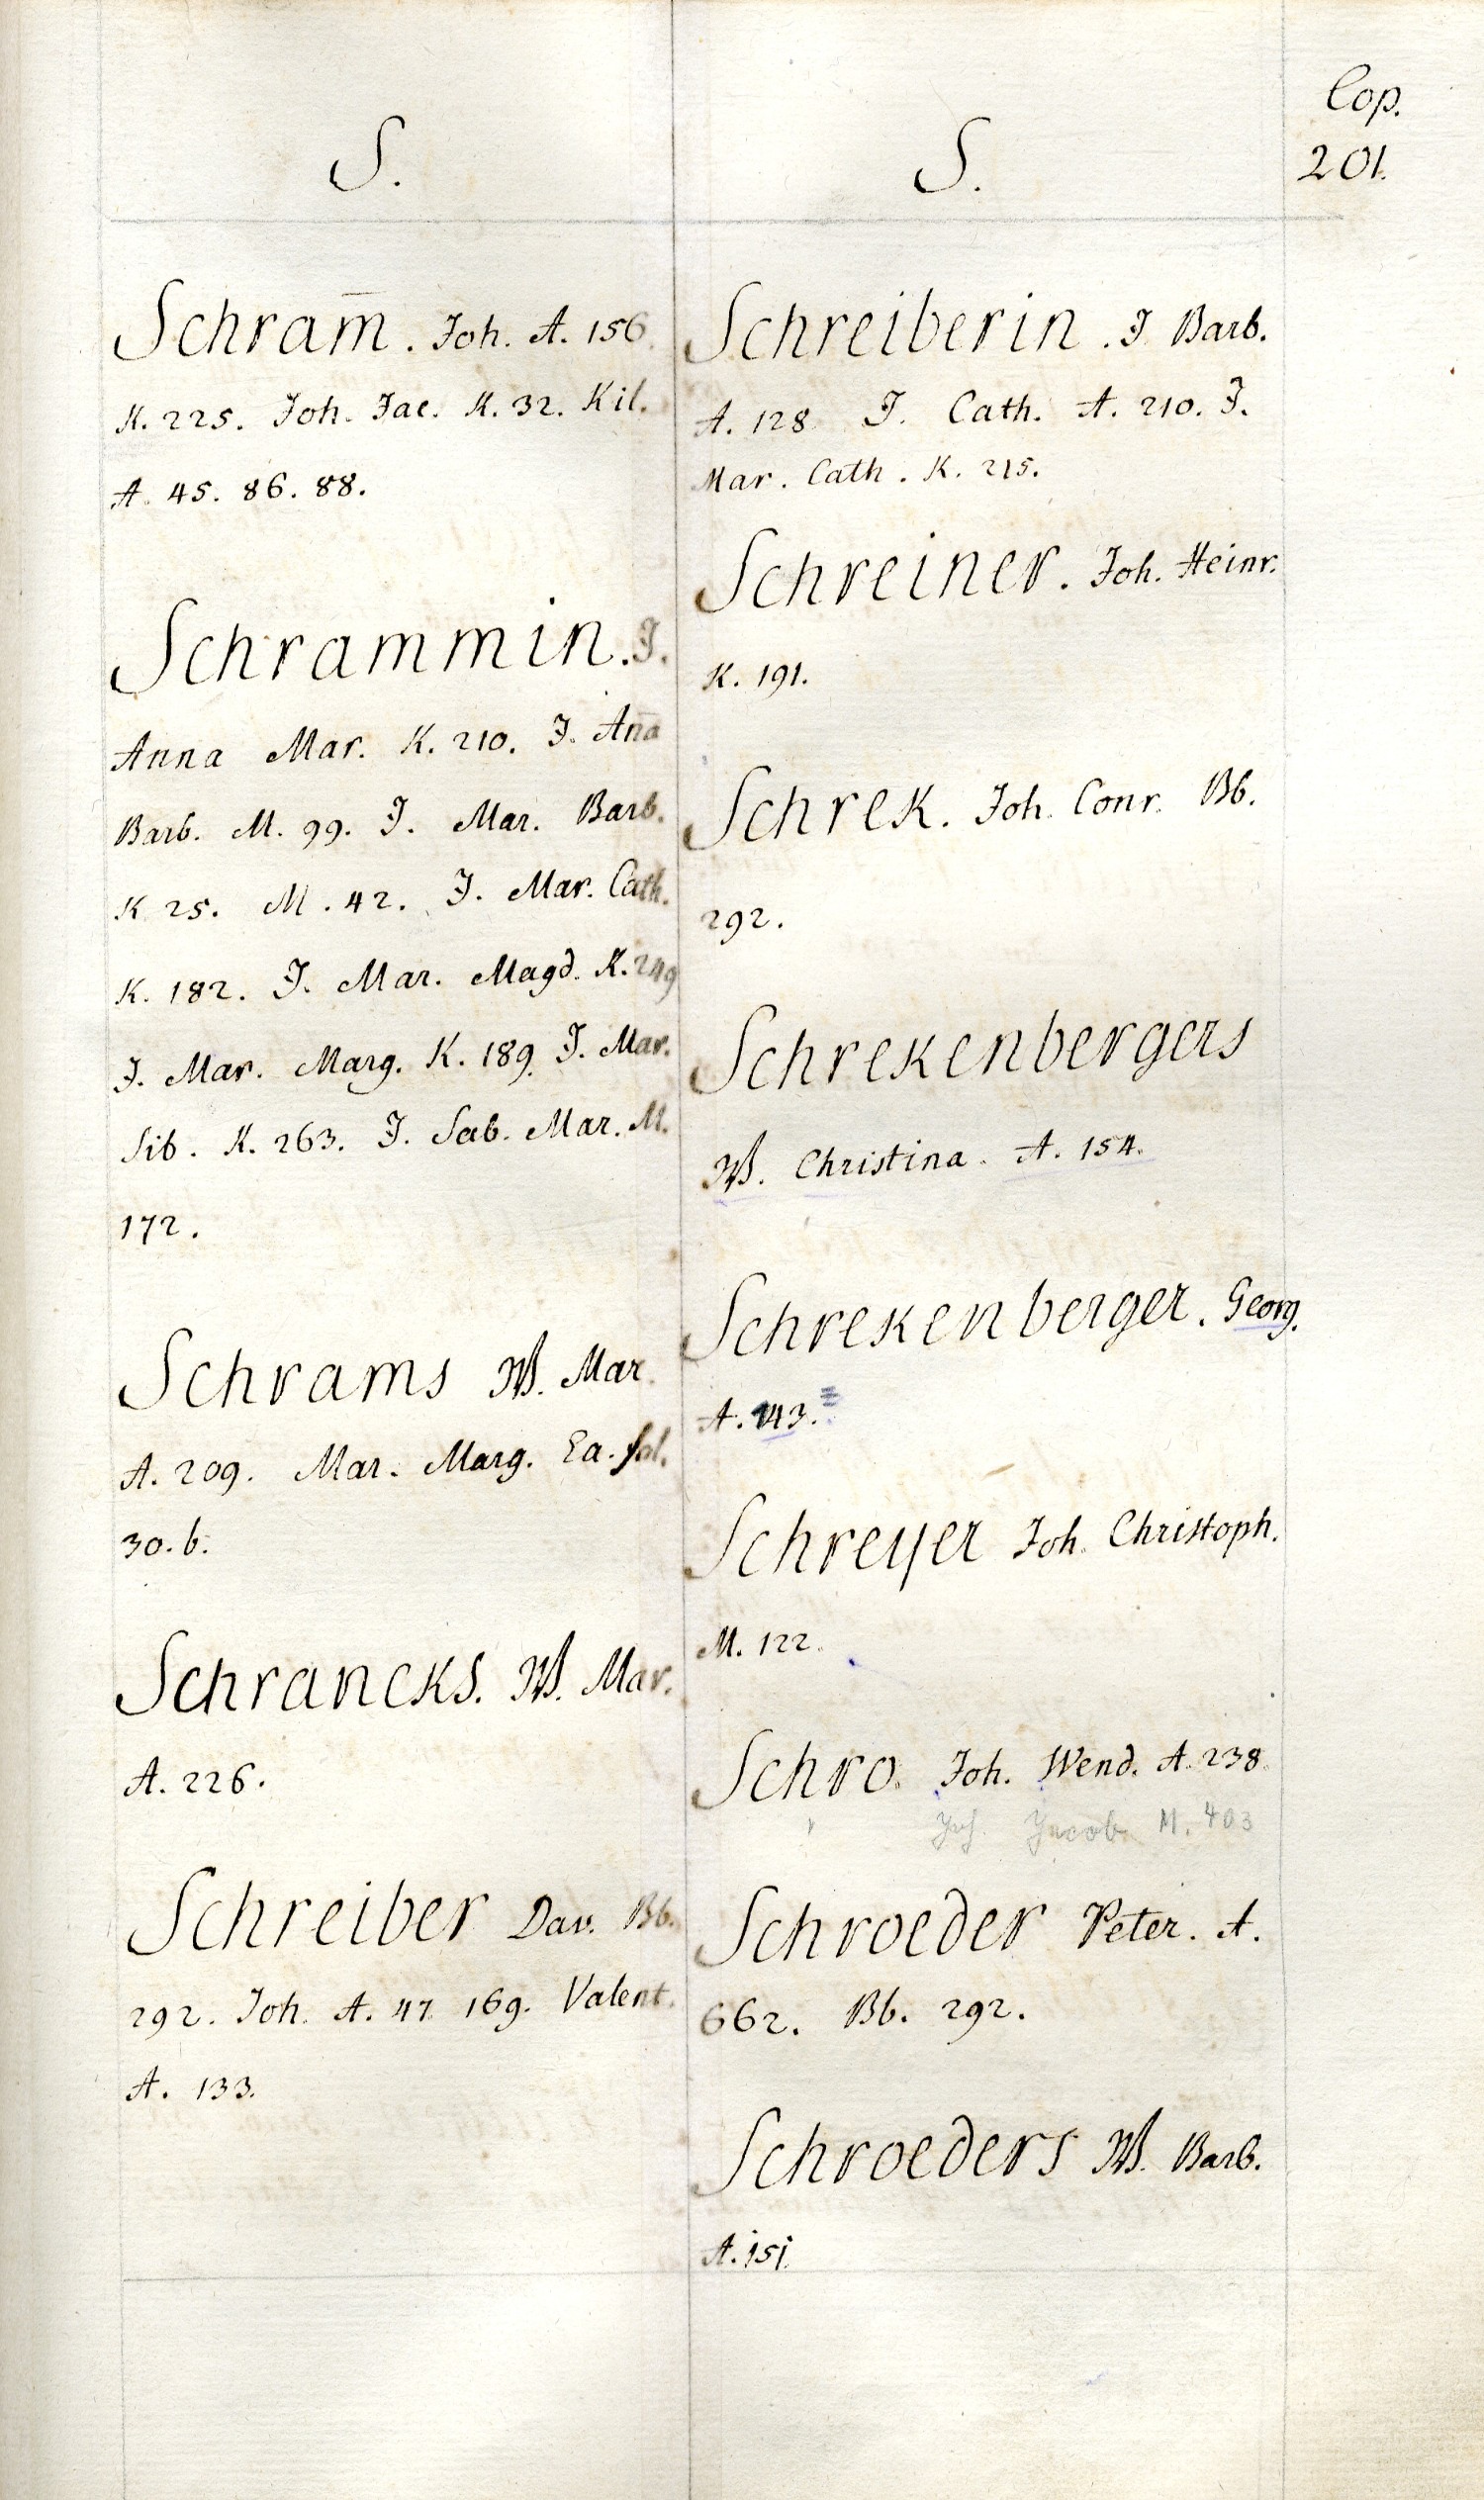 Cop.
201.
S.
Schram̅. Joh. A. 156.
K. 225. Joh. Jac. K. 32. Kil.
A. 45. 86. 88.
Schrammin. J.
Anna Mar. K. 210. J. An̅a
Barb. M. 99. J. Mar. Barb.
K 25. M. 42. J. Mar. Cath.
K. 182. J. Mar. Magd. K. 249
J. Mar. Marg. K. 189. J. Mar.
Sib. K. 263. J. Sab. Mar. M.
172.
Schrams W. Mar.
A. 209. Mar. Marg. Ea. fol.
30. b.
Schrancks. W. Mar.
A. 226.
Schreiber Dav. Bb.
292. Joh. A. 47. 169. Valent.
A. 133.
S.
Schreiberin. J Barb.
A. 128 J. Cath. A. 210. J.
Mar. Cath. K. 215.
Schreiner. Joh. Heinr.
K. 191.
Schrek. Joh. Conr. Bb.
292.
Schrekenbergers
W. Christina. A. 154.
Schrekenberger. Georg.
A. 143.
Schreyer Joh. Christoph.
M. 122.
Schro. Joh. Wend. A. 238.
Joh. Jacob M. 403
Schroeder Peter. A.
662. Bb. 292.
Schroeders W. Barb.
A. 151.